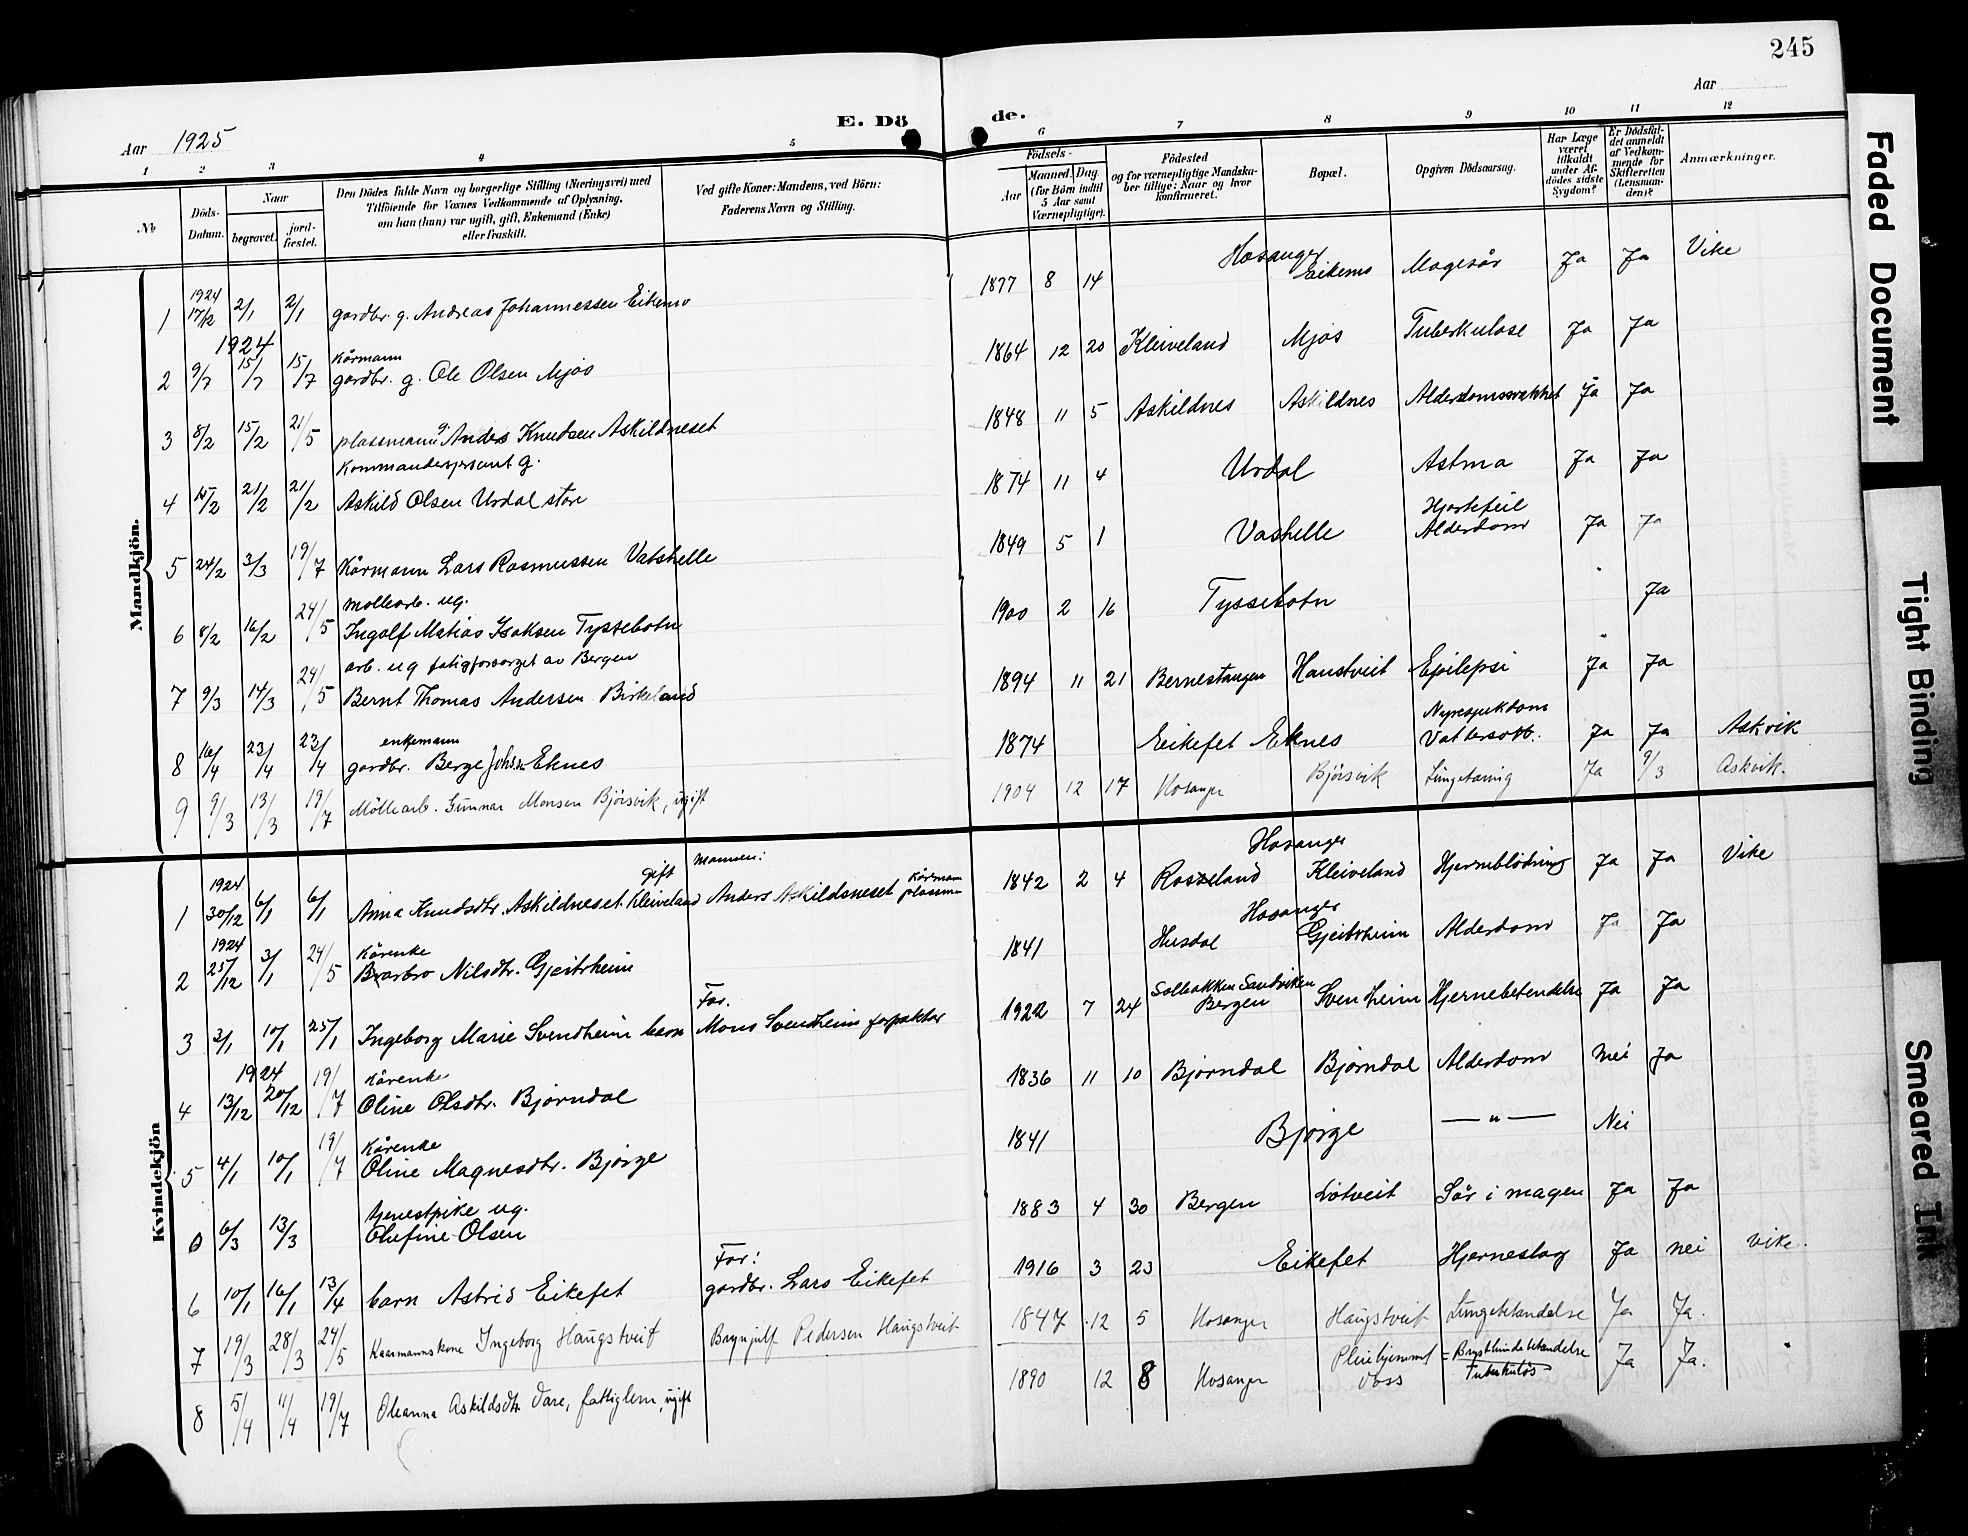 245
Aar
Aar 1925
E. Dö
de.
1 2 3 4 5 6 7 8 9 10 11 12
No
Döds-Datum.
Naar
begravet.
jord-fæstet.
Den Dödes fulde Navn og borgerlige Stilling (Næringsvei) med
Tilföiende for Voxnes Vedkommende af Oplysning,
om han (hun) var ugift, gift, Enkemand (Enke)
eller fraskilt.
Ved gifte Koner: Mandens, ved Börn:
Faderens Navn og Stilling.
Födsels-
Aar
Maaned. Dag.
(for Börn indtil
5 Aar samt
Værnepligtige).
Födested
og for værnepligtige Mandska-
ber tillige: Naar og hvor
konfirmeret.
Bopæl.
Opgiven Dödsaarsag.
Har Læge
været
tilkaldt
under Af-
dödes sidste
Sygdom?
Er Dödsfal-
det anmeldt
af Vedkom-
mende for
Skifteretten
(Lensman-
den)?
Anmærkninger.
Mandkjön.
1 1924 17/12 2/1 2/1 gardbr. g. Andreas Johannessen Eikemo 1877 8 14 Hosanger Eikemo Magesår Ja Ja Vike
1924
2 9/7 15/7 15/7 Kårmann gardbr. g. Ole Olsen Mjøs 1864 12 20 Kleiveland Mjøs Tuberkulose Ja Ja
3 8/2 15/2 21/5 plassmann g. Anders Knudsen Askildneset 1848 11 5 Askildnes Askildnes Alderdomssvakhet Ja Ja
4 15/2 21/2 21/2 Kommandersersjant g. Askild Olsen Urdal støre 1874 11 4 Urdal Astma Ja Ja
5 24/2 3/3 19/7 Kårmann Lars Rasmussen Vatshelle 1849 5 1 Vashelle Hjertefeil Alderdom Ja Ja
6 8/2 16/2 24/5 Møllearb. ug. Ingolf Matias Isaksen Tyssebotn 1900 2 16 Tyssebotn Ja
7 9/3 14/3 24/5 arb. ug fatigforsorget av Bergen Bernt Thomas Andersen Birkeland 1894 11 21 Bernestangen Haustveit Epilepsi Ja Ja
8 16/4 23/4 23/4 enkemann gardbr. Berge Johsen Eknes 1874 Eikefet Eknes Nyresjukdom Vattersott. Ja Ja Askvik
9 9/3 13/3 19/7 Möllearb. Gunnar Monsen Bjørsvik, ugift 1904 12 17 Hosanger Bjørsvik Lungetæring Ja 9/3 Askvik.
Kvindekjön
1 1924 30/12 6/1 6/1 Anna Knudsdtr. Askildneset Kleiveland gift Mannen: Anders Askildsneset Kårmann plassm. 1842 2 4 Rosseland Hosanger Kleiveland Hjerneblödning Ja Ja Vike
2 1924 25/12 3/1 24/5 Kårenke Brarbro Nilsdtr. Gjeitrheim 1841 Husdal Hosanger Gjeitrheim Alderdom Ja Ja
3 3/1 10/1 25/1 Ingeborg Marie Svendheim barn Far. Mons Svendheim forpakter 1922 7 24 Solbakken Sandviken Bergen Svenheim Hjernebetendelse Ja Ja
1924
4 13/12 20/12 19/7 Kårenke Oline Olsdtr. Bjørndal 1836 11 10 Bjørndal Bjørndal Alderdom Nei Ja
5 4/1 10/1 19/7 Kårenke Oline Magnesdtr. Bjørge 1841 Bjørge — " — Nei
0 6/3 13/3 tjenestpike ug. Olufine Olsen 1883 4 30 Bergen Lötveit Sår i magen Ja Ja
6 10/1 16/1 13/4 barn Astrid Eikefet Far: gardbr. Lars Eikefet 1916 3 23 Eikefet Hjerneslag Ja nei Vike.
7 19/3 28/3 24/5 Kaarmannskone Ingeborg Haugstveit Brynjulf Pedersen Haugstveit 1847 12 5 Hosanger Haugstveit Lungebetændelse Ja Ja.
8 5/4 11/4 19/7 Oleanna Askildsdtr. Dare, fattiglem, ugift 1890 12 8 Hosanger Pleiehjemmet Voss = Brysthindebetændelse Tuberkuløs Ja Ja.
Faded Document
Tight Binding
Smeared Ink